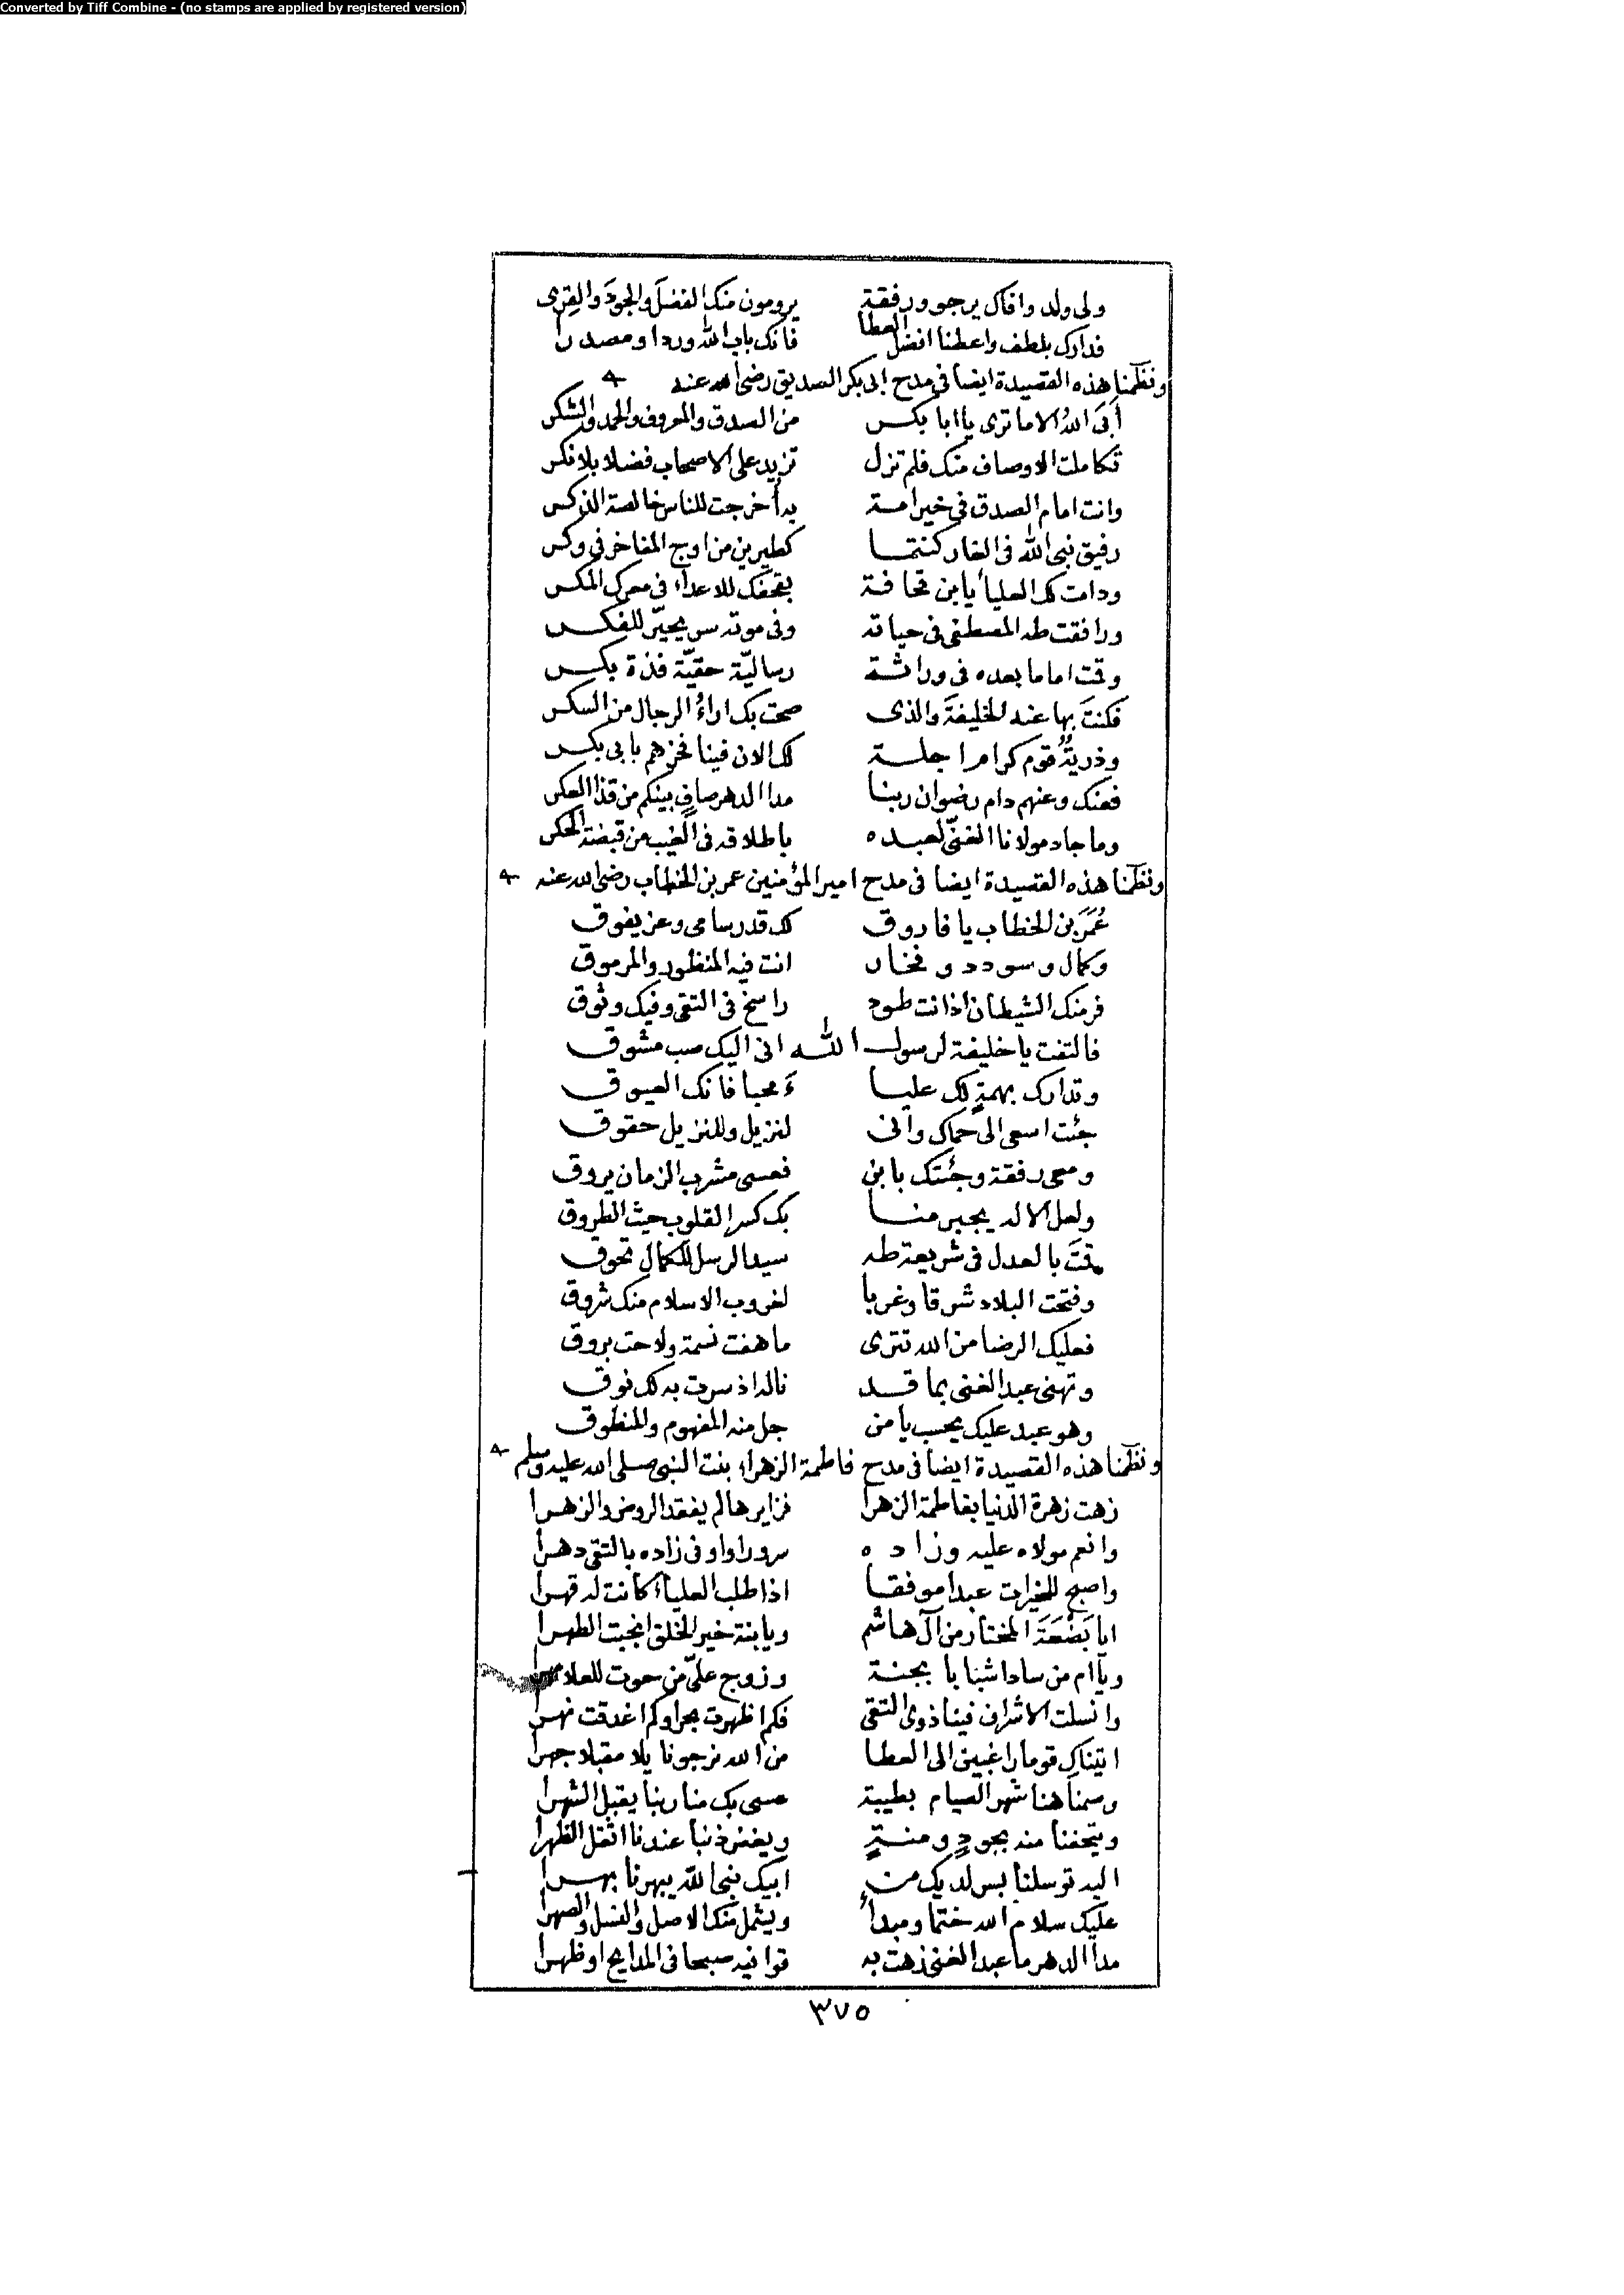 Converted by Tiff Combine - (no stamps are applied by registered version)
ولى ولد وافاك يرجو ورفقة يرومون منك الفضلَ والجودَ والقِرى
فدارك بلطف واعطنا افضل العطا فانك باب الله وردا ومصدرا
ونظمنا هذه القصيدة ايضا فى مدح ابى بكر الصديق رضى الله عنه
أبَى اللهُ الا ما ترى يا ابا بكر من الصدق والمعروف والحمد والشكر
تكاملت الاوصاف منك فلم تزل تزيد على الاصحاب فضلا بلا نكر
وانت امام الصدق فى خير امة به أخرجت للناس خالصة الذكر
رفيق نبى الله فى الغار كنتما كطيرين من اوج المفاخر فى وكر
ودامت لك العلياء يا ابن قحافة بقحفك للاعداء فى معرك المكر
ورافقت طه المصطفى فى حياته وفى موته سر يحيّر للفكر
وقمت اماما بعده فى وراثة رساليّة حقيّة فذة بكر
فكنتَ بها عند الخليفةَ والذى صحت بك اراءُ الرجال من السكر
وذريةٌ قوم كرام اجلة لك الان فينا فخرهم بابى بكر
فعنك وعنهم دام رضوان ربنا مدا الدهر صافٍ بينكم من قذا العكر
وما جاد مولانا الغنىّ لعبده باطلاقه فى الغيب من قبضة الحكر
ونظمنا هذه القصيدة ايضا فى مدح امير المؤمنين عمر بن الخطاب رضى الله عنه
عُمَرَ بن الخطاب يا فاروق لك قدر سامى وعز يفوق
وكمال وسودد وفخار انت فيه المنظور والمرموق
فر منك الشيطان اذ انت طود راسخ فى التقى وفيك وثوق
فالتفت يا خليفة لرسول الله انى اليك صب مشوق
وتدارك بهمةٍ لك عليا ءَ محبا فانك العيوق
جئت اسعى الى حماك وانى لنزيل وللنزيل حقوق
ومعى رفقة وجئتك بابن فعسى مشرب الزمان يروق
ولعل الاله يجبر منا بك كسر القلوب حيث الطروق
قمتَ بالعدل فى شريعة طه سيد الرسل للكمال تحوق
وفتحت البلاد شرقا وغربا لغروب الاسلام منك شروق
فعليك الرضا من الله تترى ما هفت نسمة ولاحت بروق
وتهنى عبد الغنى بما قد ناله اذ سرت به لك نوق
وهو عبد عليك يحسب يا من جل منه المفهوم والمنطوق
ونظمنا هذه القصيدة ايضا فى مدح فاطمة الزهراء بنت النبى صلى الله عليه وسلم
زهت زهرة الدنيا بفاطمة الزهرا فزايرها لم يفقد الروض والزهرا
وانعم مولاه عليه وزاده سرورا واوفى زاده بالتقى دهرا
واصبح للخيرات عبدا موفقا اذا طلب العلياء كانت له قهرا
ايا بَضْعَةَ المختار من آل هاشم ويا بنة خير الخلق انجبت الطهرا
ويآ ام من سادا شبابا بجنة وزوج علىّ من حوت للعلا
وانسلت الاشراف فينا ذوى التقى فكم اظهرت بحرا وكم اغدقت نهرا
اتيناكِ قوما راغبين الى العطا من الله نرجو نايلا مقبلا جهرا
وصمنا هنا شهر الصيام بطيبة عسى بك منا ربنا يقبل الشهرا
ويتحفنا منه بجودٍ ومنةٍ ويغفر ذنبا عندنا اثقل الظهرا
اليه توسلنا بسر لديك من ابيك نبى الله يبهرنا بهرا
عليك سلام الله ختما ومبدأً ويشمل منك الاصل والنسل والصهرا
مدا الدهر ما عبد الغنى زهت به قوافيه صبحا فى المدايح او ظهرا
٣٧٥